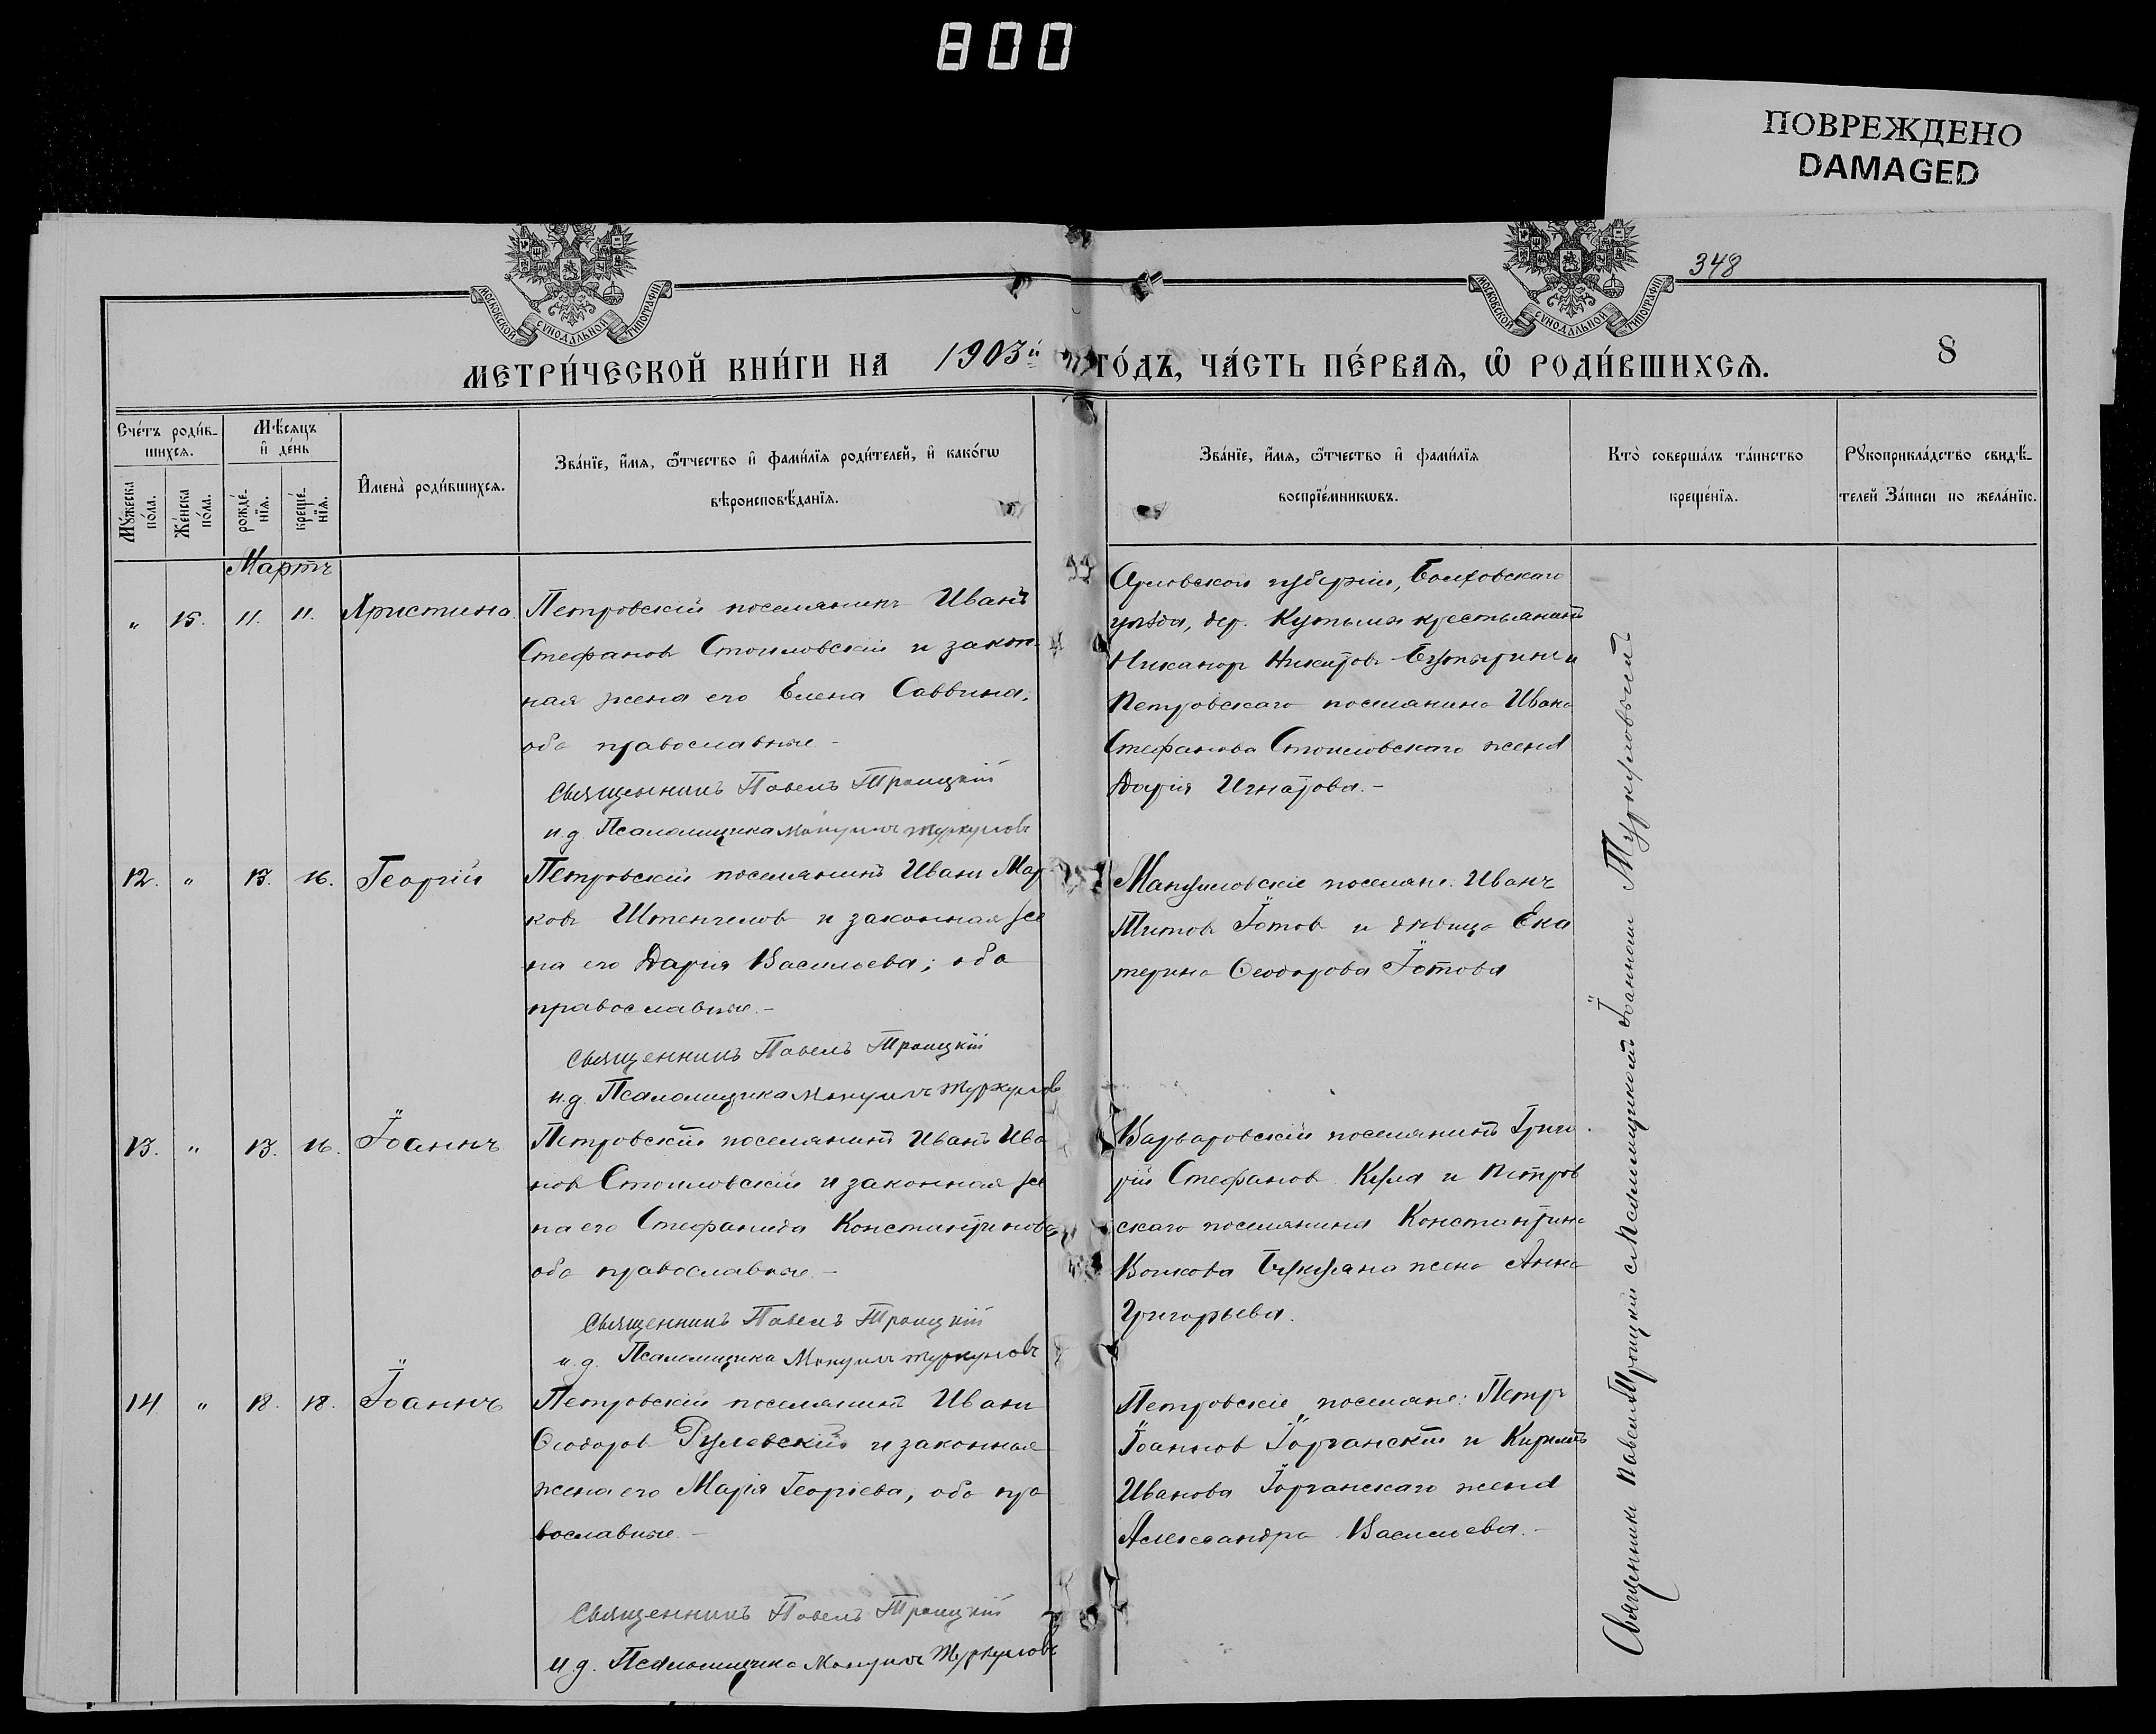 800
ПОВРЕЖДЕНО
DAMAGED
МОСКОВСКОЙ СѴНОДАЛЬНОЙ ТИПОГРАФІИ
МОСКОВСКОЙ СѴНОДАЛЬНОЙ ТИПОГРАФІИ
348
МЕТРИ́ЧЕСКОЙ КНИ́ГИ НА 1903й ГО́ДЪ, ЧА́СТЬ ПЕ́РВАѦ, Ѽ РОДИ́ВШИХСѦ.
8
Сче́тъ роди́в-
шихсѧ.
Мꙋ́жеска по́ла.
Же́нска по́ла.
Мѣ́сѧцъ
и҆ де́нь
рожде́-нїѧ.
креще́-нїѧ.
И҆мена̀ роди́вшихсѧ.
Зва́нїе, и҆́мѧ, ѻ҆́тчество и҆ фами́лїѧ роди́телей, и҆ како́гѡ
вѣроисповѣ́данїѧ.
Зва́нїе, и҆́мѧ, ѻ҆́тчество и҆ фами́лїѧ
воспрїе́мникѡвъ.
Кто̀ соверша́лъ та́инство
креще́нїѧ.
Рꙋкоприкла́дство свидѣ́-
телей За́писи по жела́нїю.
Мартъ
" 15. 11. 11. Христина.
Петровскій поселянинъ Иванъ
Стефановъ Стоиловскій и закон-
ная жена его Елена Саввина,
оба православные.-
Священникъ Павелъ Троицкій
и.д. Псаломщика Мануилъ Туркуловъ
Орловской губерніи, Болховскаго
уѣзда, дер. Кутьма крестьянинъ
Никаноръ Никитовъ и
Петровскаго поселянина Ивана
Стефанова Стоиловскаго жена
Дарія Игнатова.-
12. " 13. 16. Георгій
Петровскій поселянинъ Иванъ Мар
ковъ Штенгеловъ и законная же
на его Дарія Васильева; оба
православные.-
Священникъ Павелъ Троицкій
и.д. Псаломщика Мануилъ Туркуловъ
Мануиловскіе поселяне: Иванъ
Титовъ Їотовъ и дѣвица Ека
терина Ѳеодорова Їотова
13. " 13. 16. Їоаннъ
Петровскій поселянинъ Иванъ Ива
новъ Стоиловскій и законная же
на его Стефанида Константинова
оба православные.-
Священникъ Павелъ Троицкій
и.д. Псаломщика Мануилъ Туркуловъ
Варваровскій поселянинъ Григо-
рій Стефановъ Куля и Петров
скаго поселянина Константина
Волкова жена Анна
Григорьева.
14 " 18. 18. Їоаннъ
Петровскій поселянинъ Иванъ
Ѳеодоровъ Рулевскій и законная
жена его Марія Георгіева, оба пра
вославные.-
Священникъ Павелъ Троицкій
и.д. Псаломщика Мануилъ Туркуловъ
Петровскіе поселяне: Петръ
Їоанновъ Їорганскій и Кириллъ
Иванова Їорганскаго жена
Александра Васильева.-
Священникъ Павелъ Троицкій съ Псаломщикомъ Їоанномъ Туркуловымъ